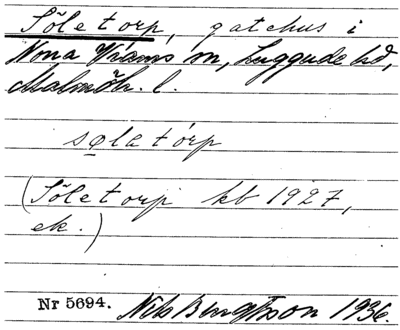 Söletorp, gatehus i
Norra Vrams sn, Luggude hd,
Malmöh. l.
sǫlatórp
(Söletorp kb 1927,
ek.)
Nr 5694. Nils Bengtsson 1936.